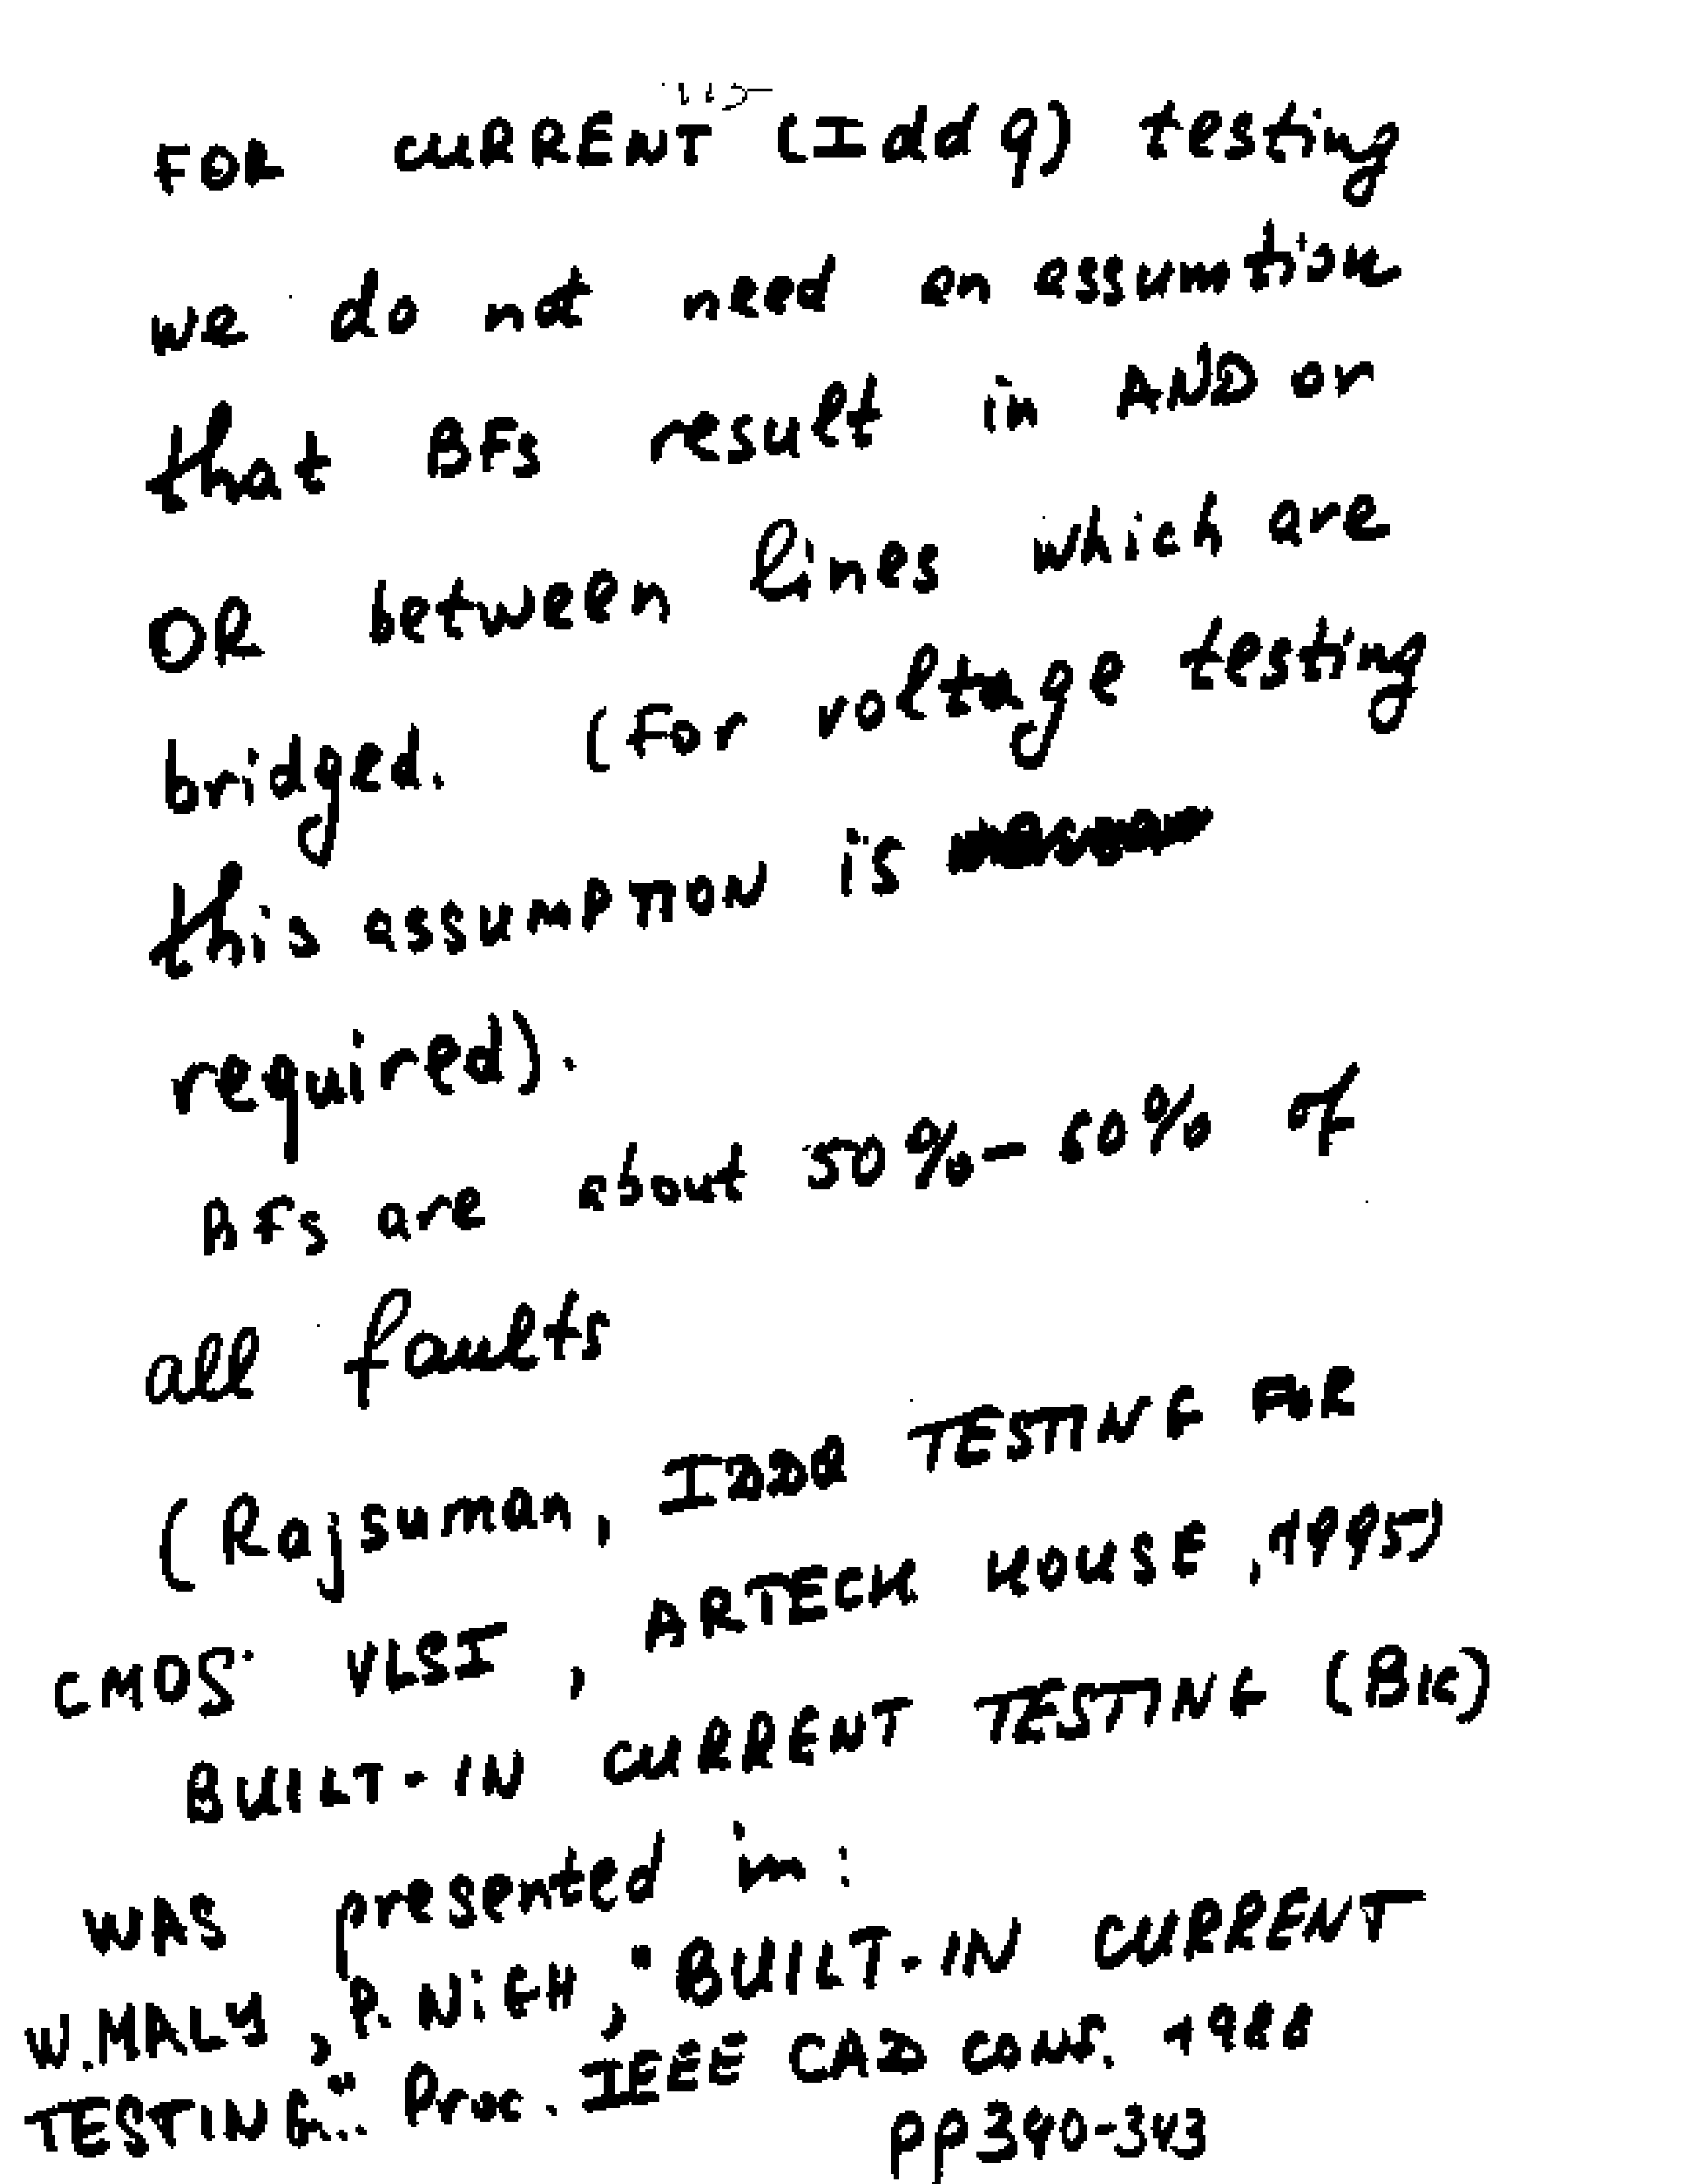 FOR CURRENT (Iddq) testing
we do not need an assumtion
that BFs result in AND or
OR between lines which are
bridged. (For voltage testing
this assumPTION is
required).
BFs are about 50%-60% of
all faults
(Rajsuman, IDDQ TESTING FOR
CMOS VLSI, ARTECH HOUSE, 1995)
BUILT-IN CURRENT TESTING (BIC)
WAS presented in:
W.MALY, P. NiGH, "BUILT-IN CURRENT
TESTING". Proc. IEEE CAD CONF. 1988
pp 340-343